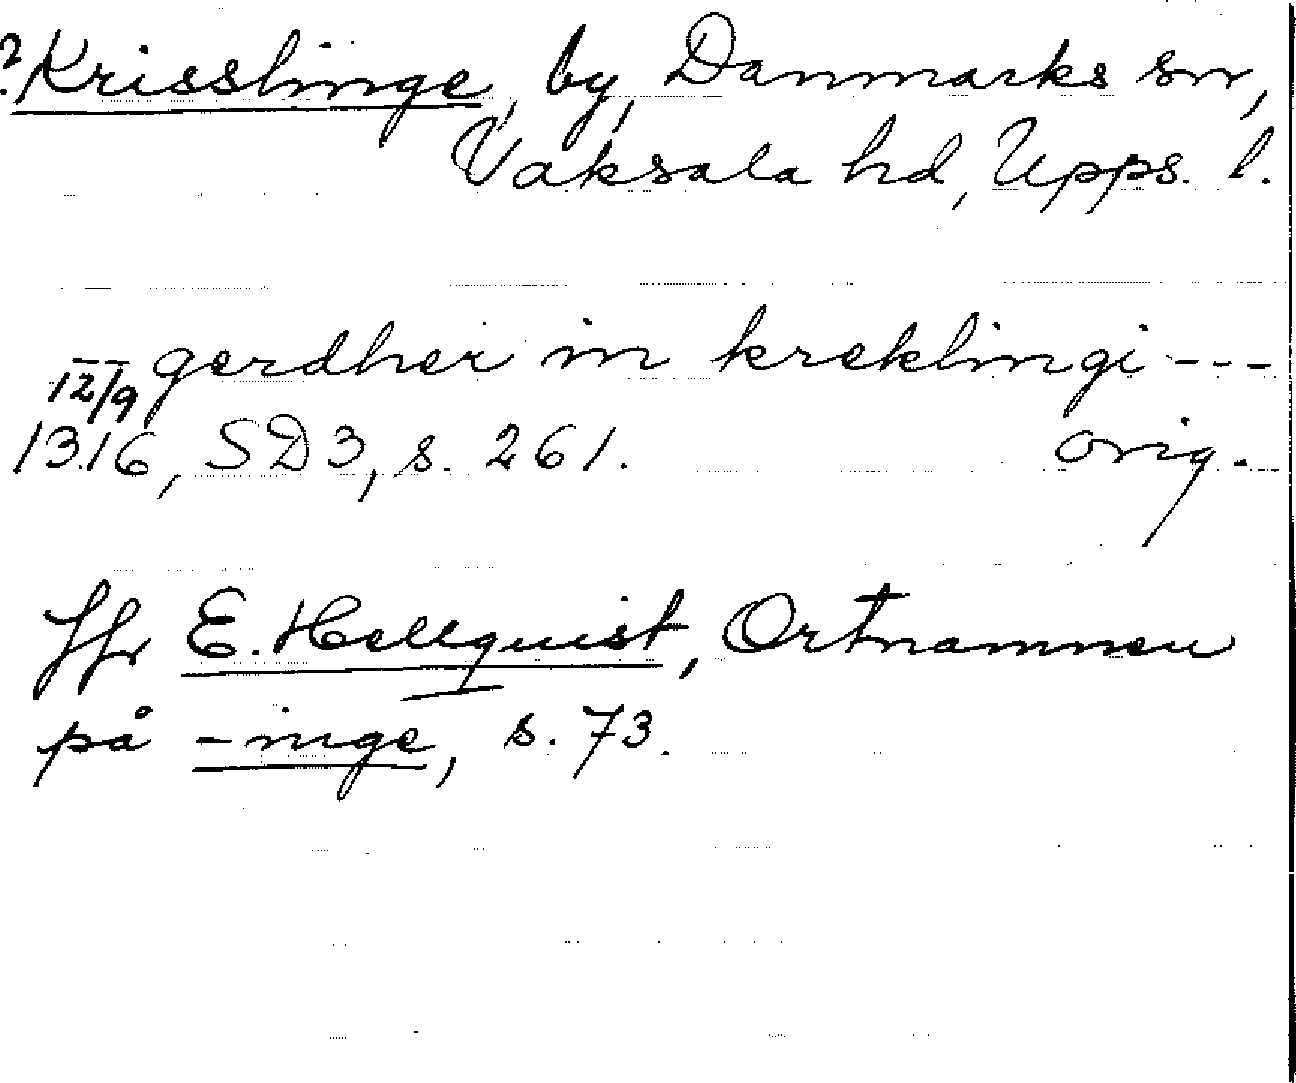 ? Krisslinge, by, Danmarks sn,
Vaksala hd, Upps. l.
-- gerdher in kreklingi ---
12/9 1316, SD 3, s. 261. orig.
Jfr E. Hellquist, Ortnamnen
på -inge, s. 73.